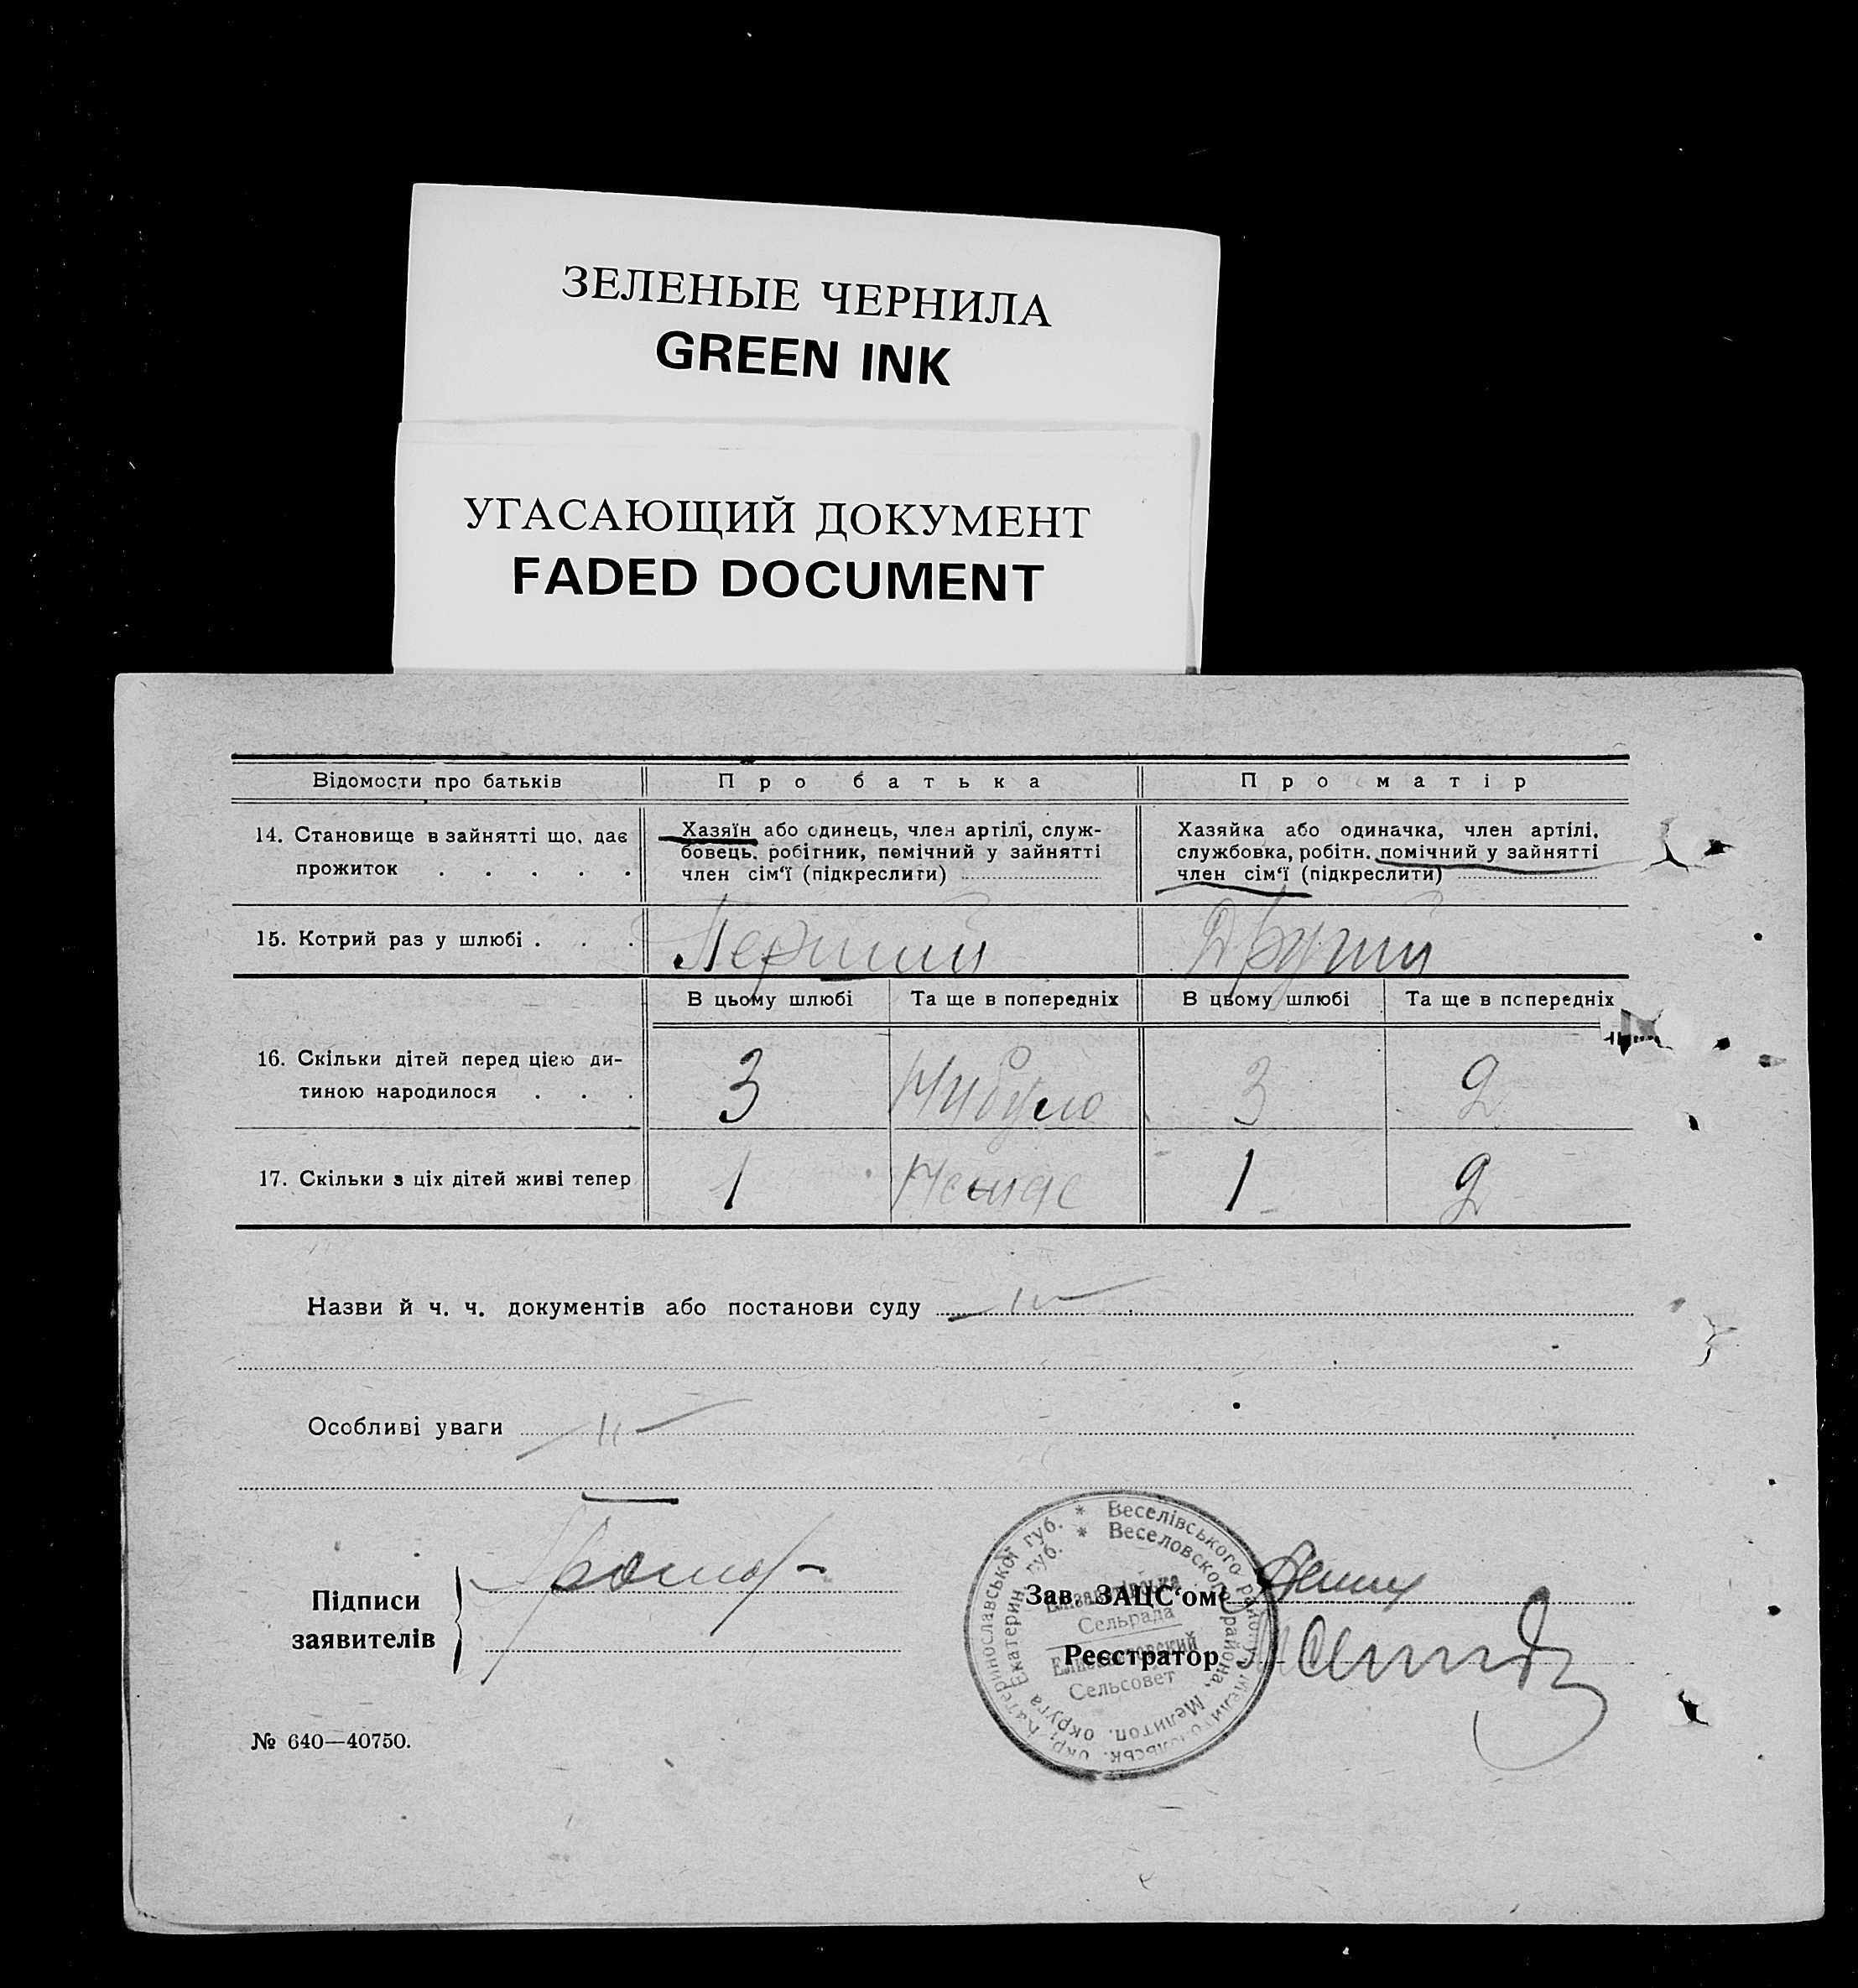 ЗЕЛЕНЫЕ ЧЕРНИЛА
GREEN INK
УГАСАЮЩИЙ ДОКУМЕНТ
FADED DOCUMENT
Відомости про батьків Про батька Про матір
14. Становище в зайнятті що, дає
прожиток . . . . .
Хазяїн або одинець, член артілі, служ-
бовець, робітник, помічний у зайнятті
член сім‘ї (підкреслити)
Хазяйка або одиначка, член артілі,
службовка, робітн. помічний у зайнятті
член сім‘ї (підкреслити)
15. Котрий раз у шлюбі . . . Перший Другий
В цьому шлюбі Та ще в попередніх В цьому шлюбі Та ще в попередніх
16. Скільки дітей перед цією ди-
тиною народилося . . .
3 Нибуло 3 2
17. Скільки з ціх дітей живі тепер 1 Немає 1 2
Назви й ч. ч. документів або постанови суду
Особливі уваги
Підписи
заявителів
Зав. ЗАЦС‘ом
Реєстратор
* Веселівського району, Мелитопольськ. окр. Катеринославської губ.
* Веселовского района, Мелитоп. округа Екатерин. губ.
Сельрада
Сельсовет
№ 640—40750.